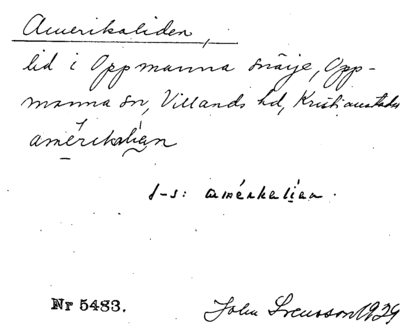 Amerikaliden,
lid i Oppmanna snäije, Opp-
manna sn, Villands hd, Kristianstads
amérikalian
f-s: amérkalian.
Nr 5483. John Svensson 1929